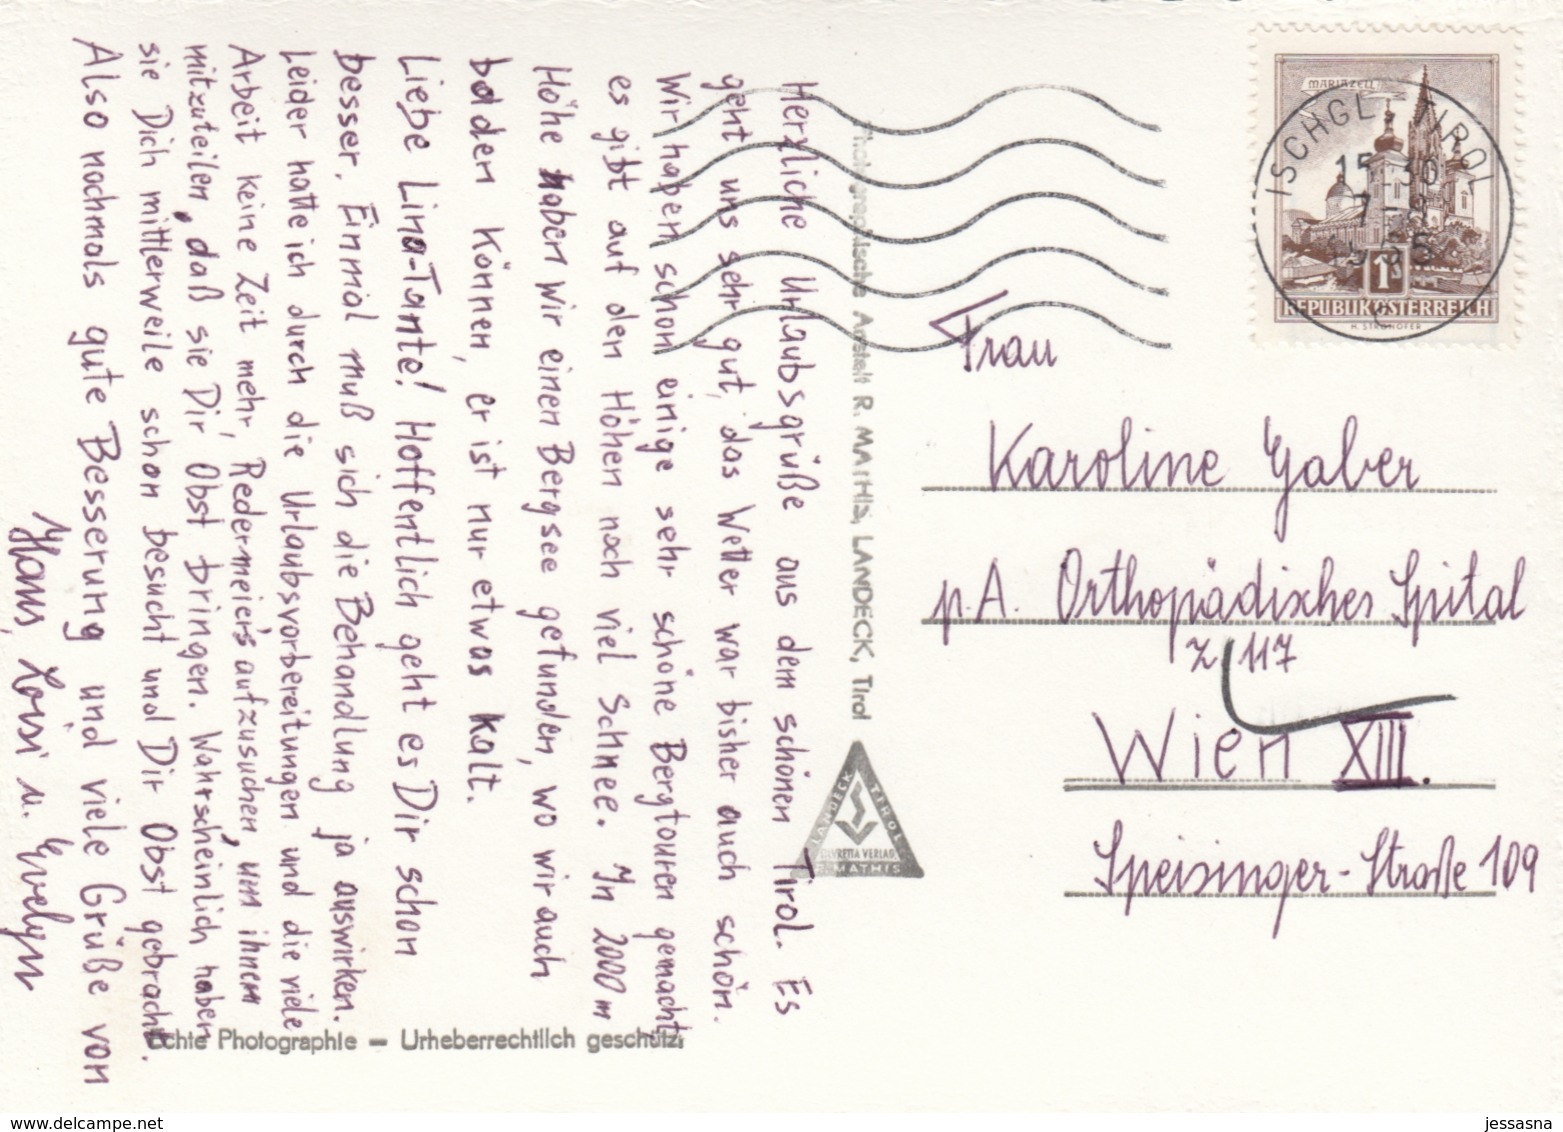 Herzliche Urlaubsgrüße aus dem schönen Tirol. Es
geht uns sehr gut, das Wetter war bisher auch schön.
Wir haben schon einige sehr schöne Bergtouren gemacht,
es gibt auf den Höhen noch viel Schnee. In 2000 m
Höhe haben wir einen Bergsee gefunden, wo wir auch
baden können, er ist nur etwas kalt.
Liebe Lina-Tante! Hoffentlich geht es Dir schon
besser. Einmal muß sich die Behandlung ja auswirken.
Leider hatte ich durch die Urlaubsvorbereitungen und die viele
Arbeit keine Zeit mehr, Redermeier's aufzusuchen, um ihnen
mitzuteilen, daß sie Dir Obst bringen. Wahrscheinlich haben
sie Dich mittlerweile schon besucht und Dir Obst gebracht.
Also nochmals gute Besserung und viele Grüße von
Hans, Loisi u. Evelyn
Photographische Anstalt R. MATHIS, LANDECK, Tirol
LANDECK TIROL
SILVRETTA VERLAG
R. MATHIS
Echte Photographie – Urheberrechtlich geschützt
MARIAZELL
ISCHGL - TIROL
15 30
7 - 9
19 65
1S
REPUBLIK ÖSTERREICH
H. STROHOFER
Frau
Karoline Gaber
p.A. Orthopädisches Spital
Z 117
Wien XIII.
Speisinger-Straße 109
www.delcampe.net
jessasna